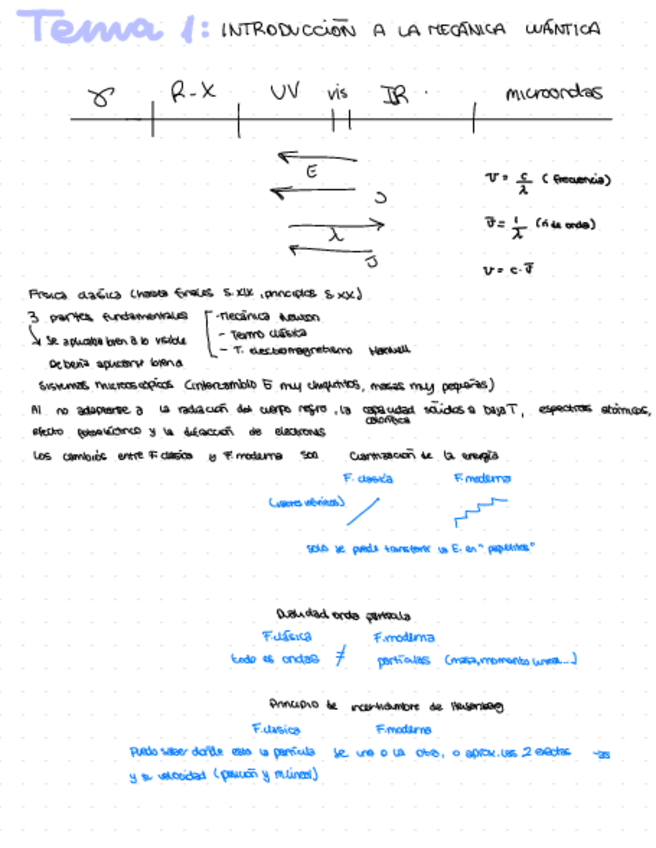 Tema 1: INTRODUCCIÓN A LA MECÁNICA CUÁNTICA
γ R-X UV vis IR. microondas
E
υ
λ
ῡ
υ = c/λ (frecuencia)
ῡ = 1/λ (nº de onda)
υ = c · ῡ
Física clásica (hasta finales s. XIX, principios s. XX)
3 partes fundamentales
- Mecánica Newton
- Termo clásica
- T. electromagnetismo Maxwell
Se aplicaba bien a lo visible
Debería aplicarse bien a
sistemas microscópicos (intercambio E muy chiquititos, masas muy pequeñas)
Al no adaptarse a la radiación del cuerpo negro, la capacidad calorífica sólidos a baja T, espectros atómicos,
efecto fotoeléctrico y la difracción de electrones
Los cambios entre F. clásica y F. moderna son Cuantización de la energía
F. clasica F. moderna
(valores infinitos)
solo se puede transferir la E. en "paquetitos"
Dualidad onda partícula
F. clásica F. moderna
todo es ondas ≠ partículas (masa, momento lineal...)
Principio de incertidumbre de Heisenberg
F. clasica F. moderna
Puedo saber donde esta la partícula se una o la otra, o aprox. las 2 exactas
y su velocidad (posición y m. lineal)